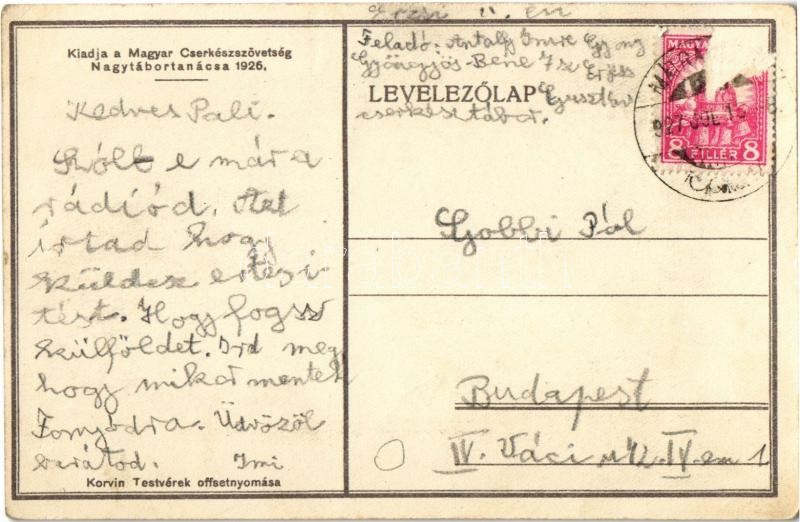 Kiadja a Magyar Cserkészszövetség
Nagytábortanácsa 1926.
Kedves Pali.
Szólt e már a
rádiód. Azt
írtad hogy
küldesz értesi-
tést. Hogy fogss
külföldet. Ird meg
hogy mikor mentek
Fonyódra. Üdvözöl
barátod. Imi
Korvin Testvérek offsetnyomása
Feladó: Antaly Imre
Gyöngyös-Bene
LEVELEZŐLAP
cserkész tábor.
MAGYAR
8 FILLÉR 8
Gobbi Pál
Budapest
IV. Váci u 42. IV. em 1